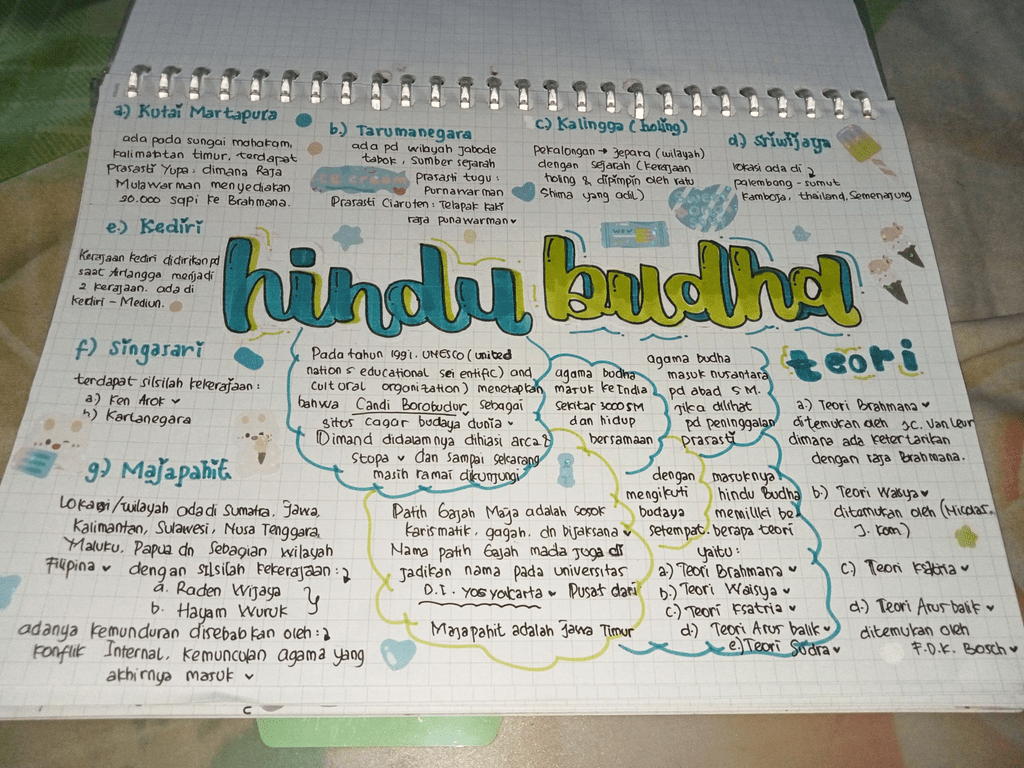 a.) Kutai Martapura
ada pada sungai mahakam,
kalimantan timur, terdapat
Prasasti Yupa: dimana Raja
Mulawarman menyediakan
20.000 sapi ke Brahmana.
b.) Tarumanegara
ada pd wilayah jabode
tabok, sumber sejarah
Prasasti tugu:
Purnawarman
Prasasti Ciaruten: Telapak kaki
raja punawarman
c.) Kalingga (holing)
Pekalongan → Jepara (wilayah)
dengan sejarah (kerajaan
holing & dipimpin oleh ratu
Shima yang adil)
d.) Sriwijaya
lokasi ada di
palembang - sumut
Kamboja, thailand, Semenanjung
e.) Kediri
Kerajaan kediri didirikan pd
saat Airlangga menjadi
2 kerajaan. ada di
kediri - Madiun.
hindu budha
f) Singasari
terdapat silsilah kekerajaan:
a) Ken Arok
b) Kartanegara
g) Majapahit
Lokasi/wilayah ada di Sumatra, Jawa,
Kalimantan, Sulawesi, Nusa Tenggara,
Maluku, Papua dn Sebagian wilayah
Filipina dengan silsilah kekerajaan:
a. Raden Wijaya
b. Hayam Wuruk
adanya kemunduran disebabkan oleh:
konflik Internal, kemunculan agama yang
akhirnya masuk
Pada tahun 1991. UNESCO (united
nations educational sei entific) and
cultural organization) menetapkan
bahwa Candi Borobudur sebagai
situs cagar budaya dunia
Dimand didalamnya dihiasi arca &
stopa dan sampai sekarang
masih ramai dikunjungi
agama budha
masuk ke India
sekitar 3000 SM
dan hidup
bersamaan
agama budha
masuk nusantara
pd abad 5 M.
jika dilihat
pd peninggalan
prasasti
Patih Gajah Maja adalah sosok
Karismatik, gagah, dn bijaksana
Nama patih Gajah mada joga di
jadikan nama pada universitas
D.I. yogyakarta Pusat dari
Majapahit adalah Jawa Timur
dengan
mengikuti
budaya
setempat.
masuknya
hindu Budha
memiliki be
berapa teori
yaitu:
a.) Teori Brahmana
b.) Teori Waisya
c.) Teori Ksatria
d.) Teori Arus balik
e.) Teori Sudra
teori
a.) Teori Brahmana
ditemukan oleh JC. Van Leur
dimana ada ketertarikan
dengan raja Brahmana.
b.) Teori Waisya
ditamukan oleh (Nicolas.
J. Kom)
c.) Teori Ksatria
d.) Teori Arus balik
ditemukan oleh
F.D.K. Bosch